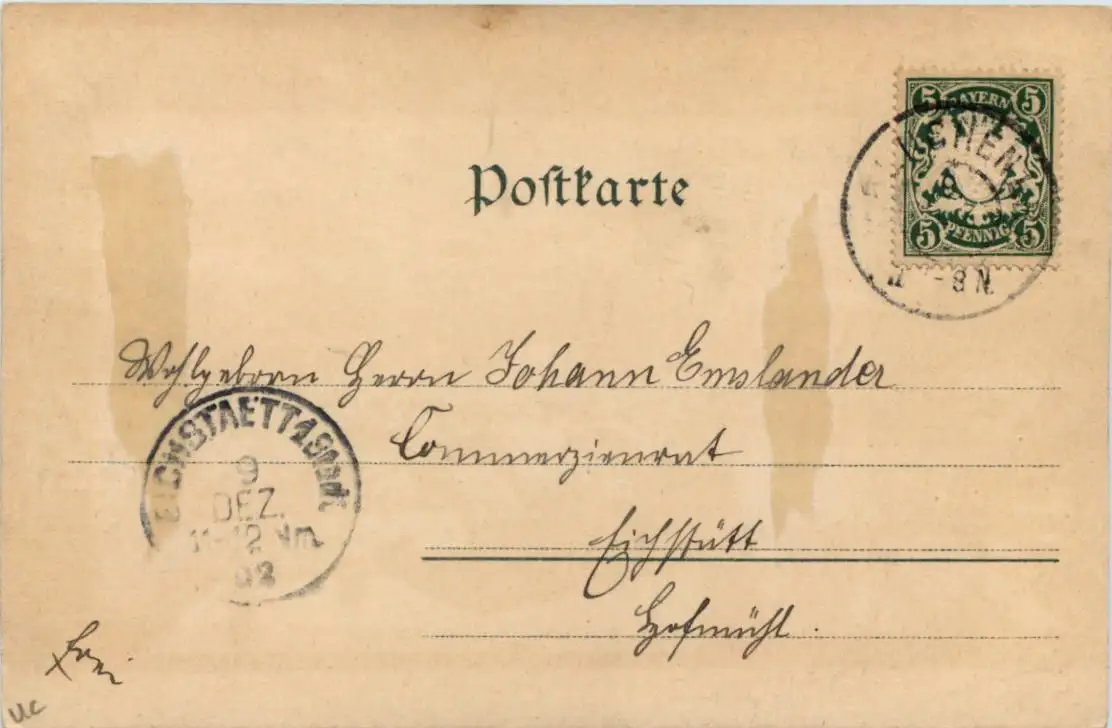 Postkarte
5 BAYERN 5
5 PFENNIG 5
9
7-8 N.
Wohlgeborn Herrn Johann Emslander
Commerzienrat
Eichstätt
Hofmühl.
EICHSTAETT 1 Stadt
9
DEZ.
11-12 Nm.
02
frei
uc